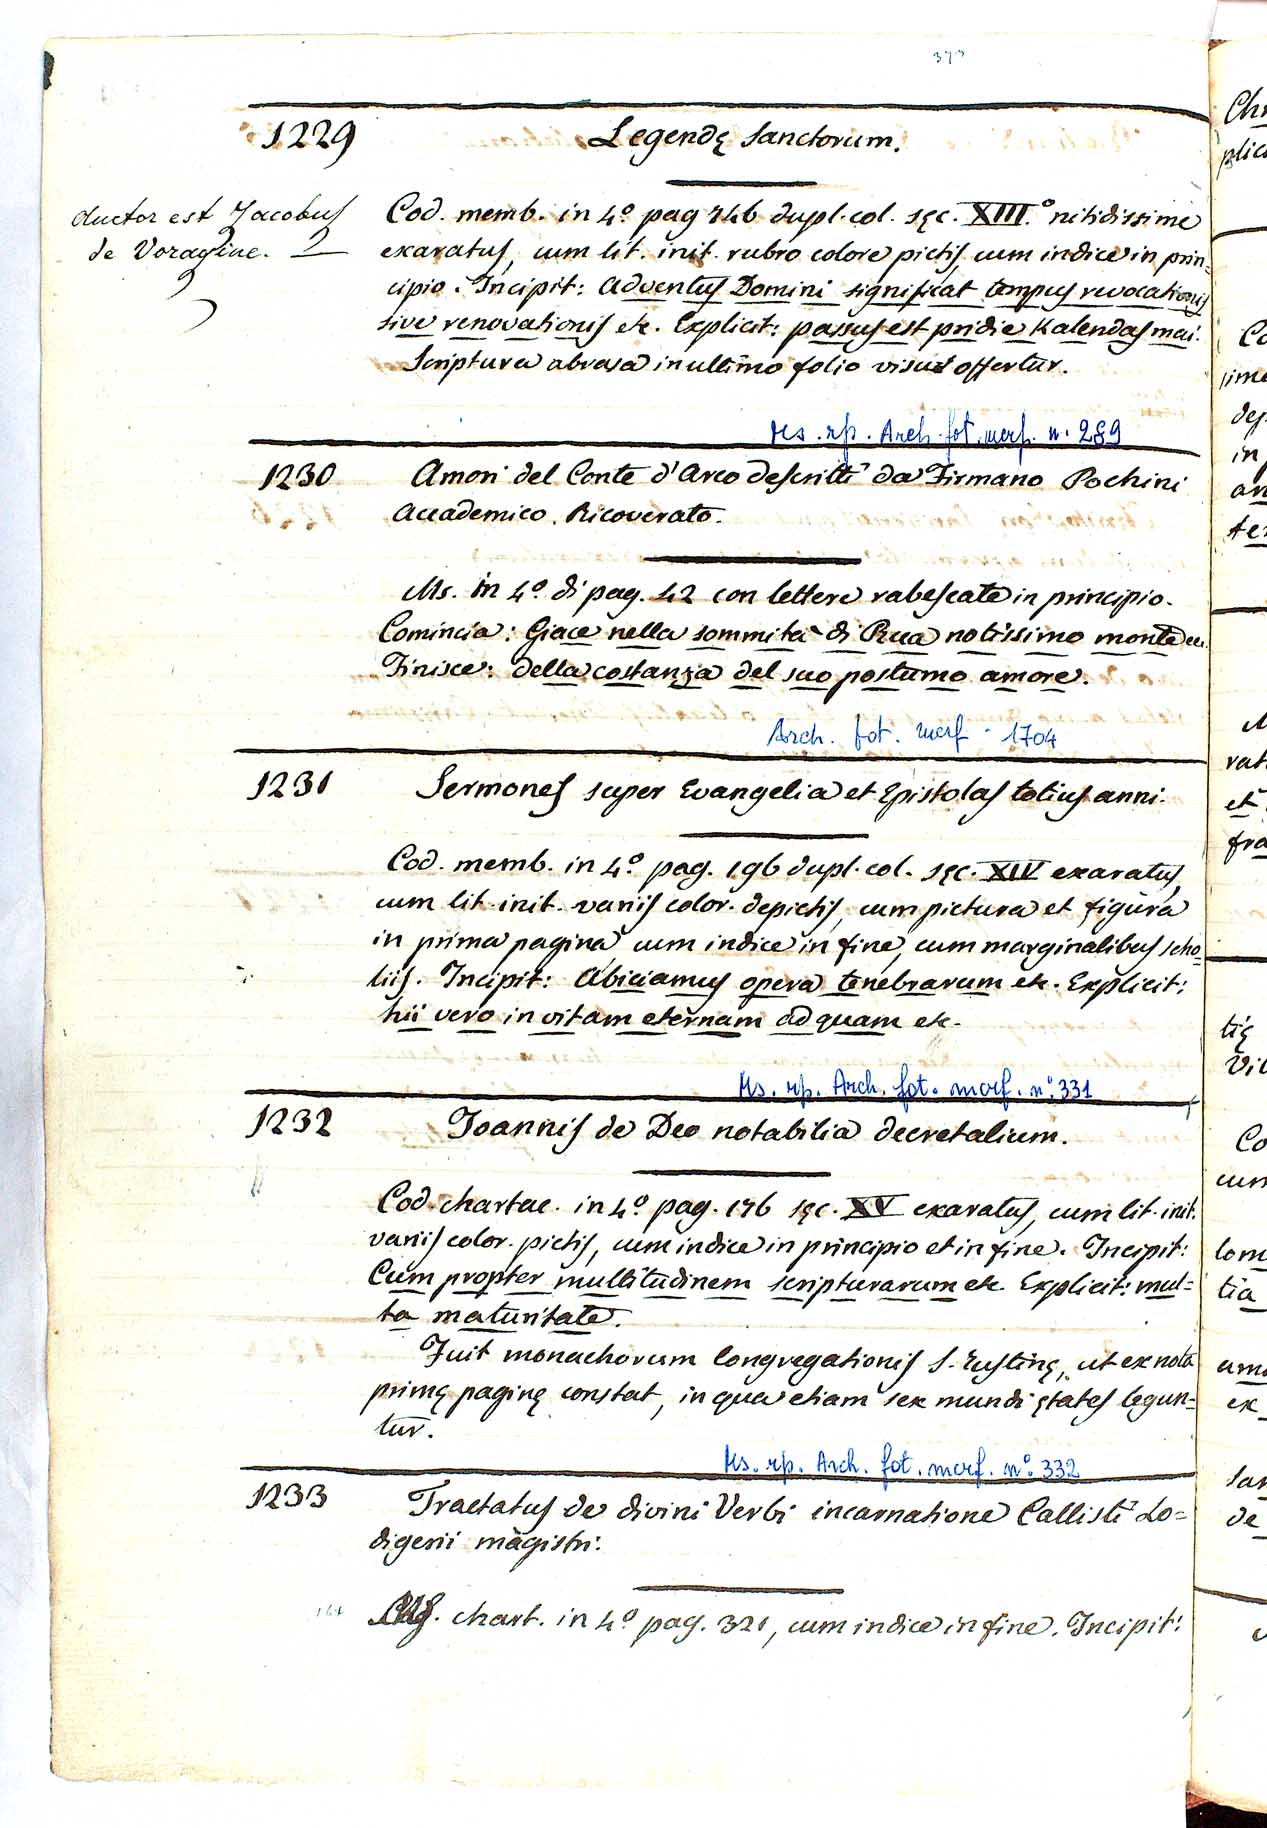 1229 Legendę Sanctorum.
Auctor est Jacobus
de Voragine.
Cod. memb. in 4º pag 746 dupl. col. sęc. XIII.º nitidissime
exaratus, cum lit. init. rubro colore pictis, cum indice in prin=
cipio. Incipit: Adventus Domini significat tempus revocationis
sive renovationis etc. Explicit: passus est pridie Kalendas mai.
Scriptura abrasa in ultimo folio visui offertur.
Ms. rp. Arch. fot. merf. n. 289
1230 Amori del Conte d'Arco descritti da Firmano Pochini
Accademico Ricoverato.
Ms. in 4º di pag. 42 con lettere rabescate in principio.
Comincia: Giace nella sommità di Rua notissimo monte ec.
Finisce: della costanza del suo postumo amore.
Arch. fot. merf. 1704
1231 Sermones super Evangelia et Epistolas totius anni.
Cod. memb. in 4º pag. 196 dupl. col. sęc. XIV exaratus,
cum lit. init. variis color. depictis, cum pictura et figura
in prima pagina cum indice in fine, cum marginalibus scho=
liis. Incipit: Abiciamus opera tenebrarum etc. Explicit:
hii vero in vitam eternam ad quam etc.
Ms. rp. Arch. fot. merf. nº. 331
1232 Joannis de Deo notabilia decretalium.
Cod. chartac. in 4º pag. 176 sęc. XV exaratus, cum lit. init.
variis color. pictis, cum indice in principio et in fine. Incipit:
Cum propter multitudinem scripturarum etc. Explicit: mul=
ta maturitate.
Fuit monachorum Congregationis S. Justinę, ut ex nota
primę paginę constat, in qua etiam sex mundi ętates legun=
tur.
Ms. rp. Arch. fot. merf. nº. 332
1233 Tractatus de divini Verbi incarnatione Callisti Lo=
digerii magistri.
chart. in 4º pag. 321, cum indice in fine. Incipit: